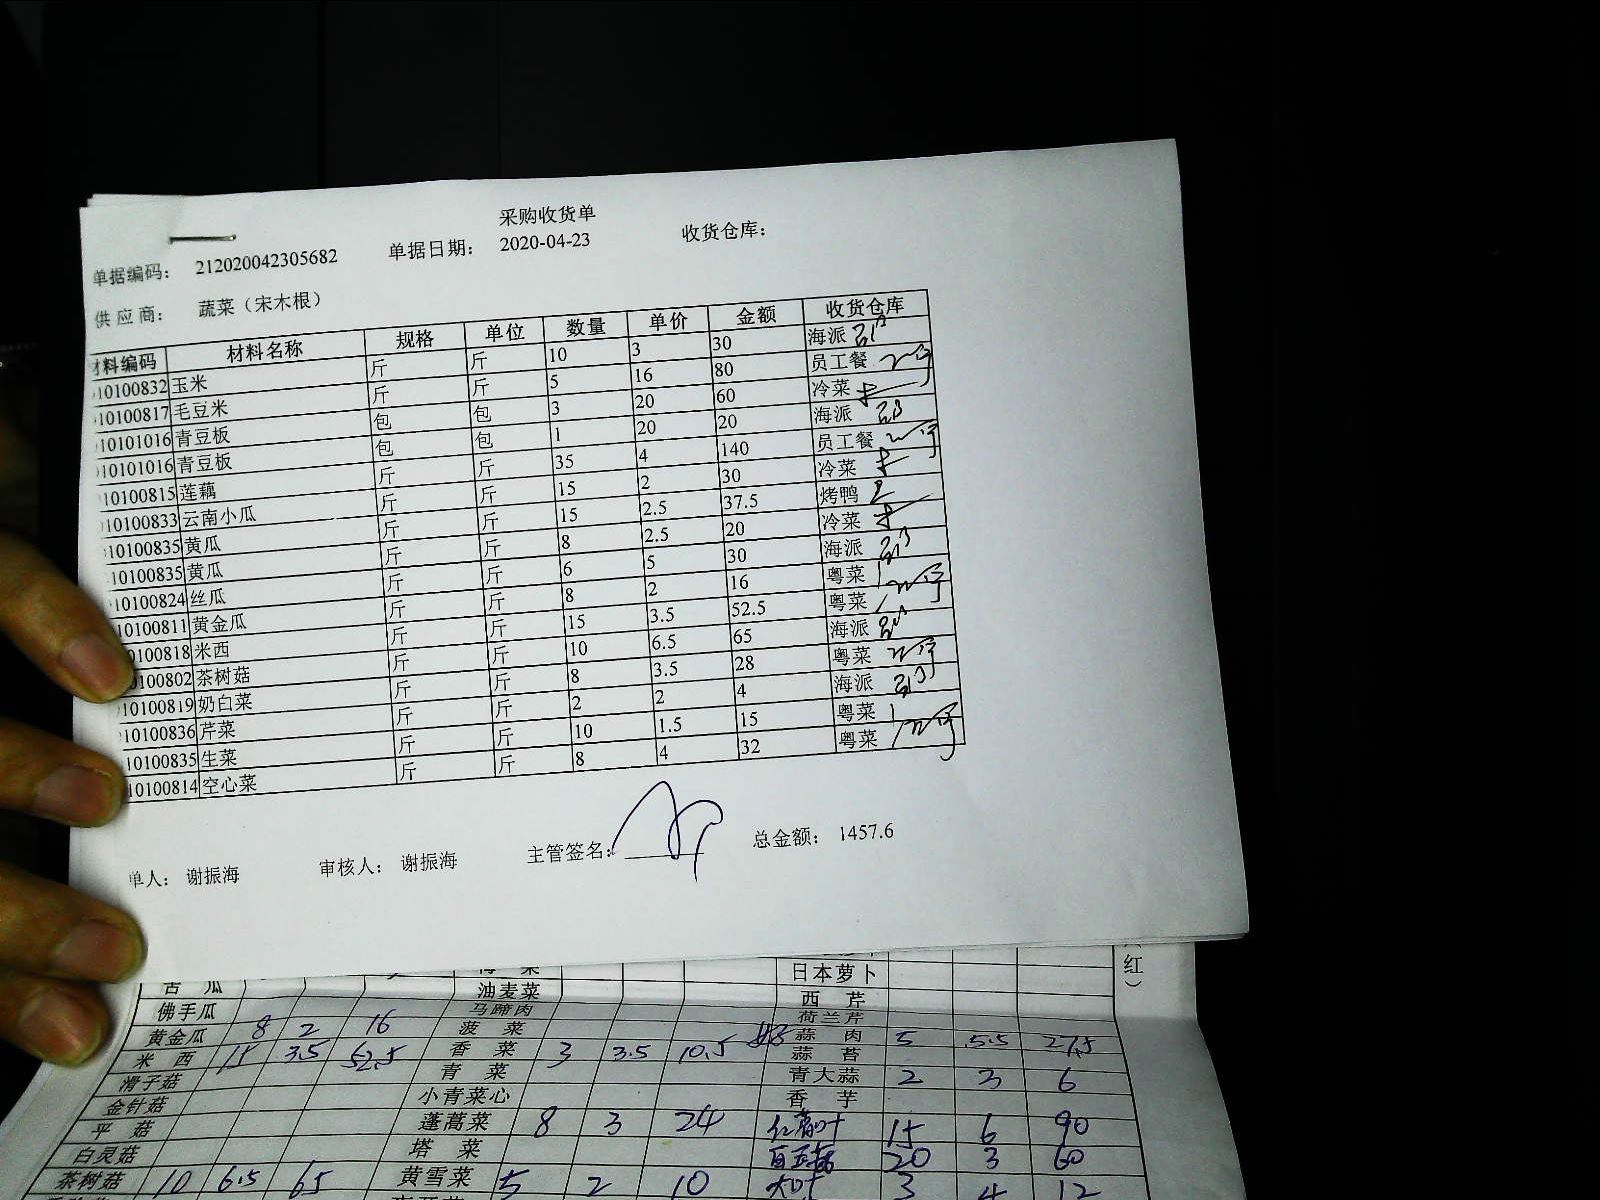 采购收货单
单据编码： 212020042305682 单据日期： 2020-04-23 收货仓库：
供应商： 蔬菜（宋木根）
材料编码 材料名称 规格 单位 数量 单价 金额 收货仓库
10100832 玉米 斤 斤 10 3 30 海派
10100817 毛豆米 斤 斤 5 16 80 员工餐
10101016 青豆板 包 包 3 20 60 冷菜
10101016 青豆板 包 包 1 20 20 海派
10100815 莲藕 斤 斤 35 4 140 员工餐
10100833 云南小瓜 斤 斤 15 2 30 冷菜
10100835 黄瓜 斤 斤 15 2.5 37.5 烤鸭
10100835 黄瓜 斤 斤 8 2.5 20 冷菜
10100824 丝瓜 斤 斤 6 5 30 海派
10100811 黄金瓜 斤 斤 8 2 16 粤菜
10100818 米西 斤 斤 15 3.5 52.5 粤菜
10100802 茶树菇 斤 斤 10 6.5 65 海派
10100819 奶白菜 斤 斤 8 3.5 28 粤菜
10100836 芹菜 斤 斤 2 2 4 海派
10100835 生菜 斤 斤 10 1.5 15 粤菜
10100814 空心菜 斤 斤 8 4 32 粤菜
单人： 谢振海 审核人： 谢振海 主管签名： 总金额： 1457.6
日本萝卜 （红）
苦瓜 油麦菜 西芹
佛手瓜 马蹄肉 荷兰芹
黄金瓜 8 2 16 菠菜 蒜肉 5 5.5 27.5
米西 15 3.5 52.5 香菜 3 3.5 10.5 蒜苔
滑子菇 青菜 青大蒜 2 3 6
金针菇 小青菜心 香芋
平菇 蓬蒿菜 8 3 24 15 6 90
白灵菇 塔菜 20 3 60
茶树菇 10 6.5 65 黄雪菜 5 2 10 大叶 3 4 12